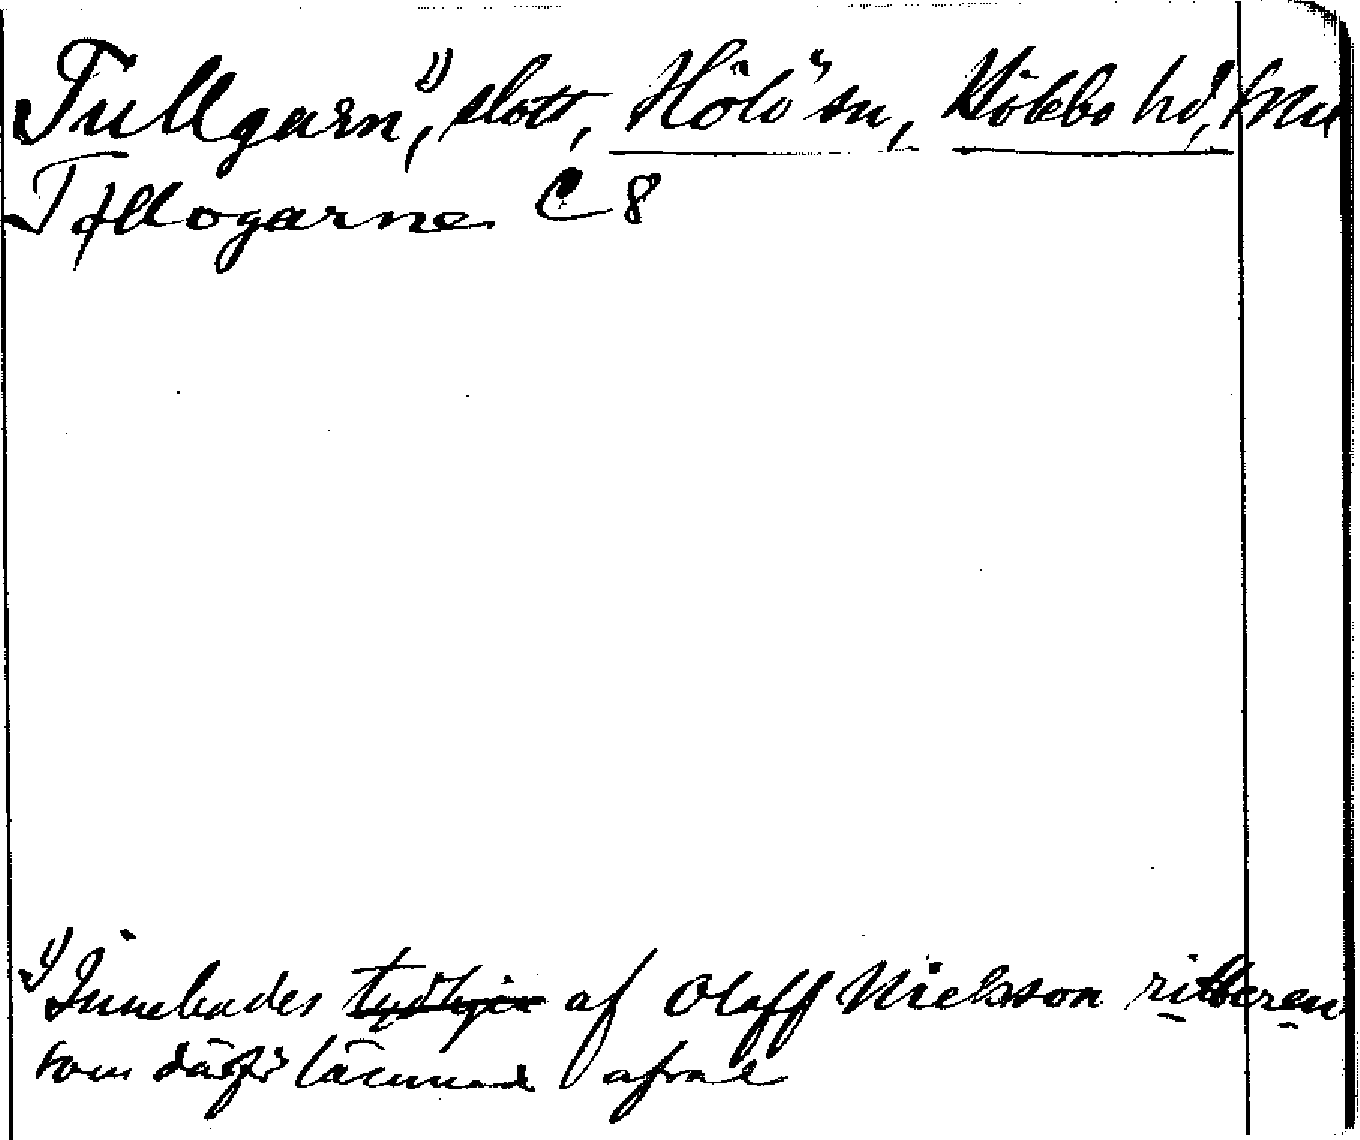 Tullgarn,¹⁾ slott, Hölö sn, Hölebo hd,
Tyllogarne C 8
¹⁾ Innehades tydligen af Olaff Nickson ritteren
som därför lämnad afrad